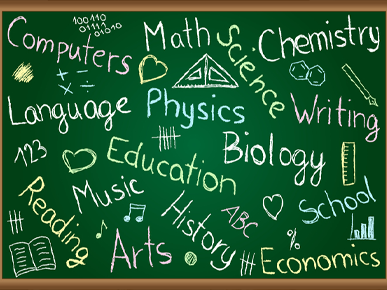 Computers
100110
01111
01010
Math
Science
Chemistry
Language
Physics
Writing
123
Education
Biology
Reading
Music
History
ABC
School
Arts
%
Economics